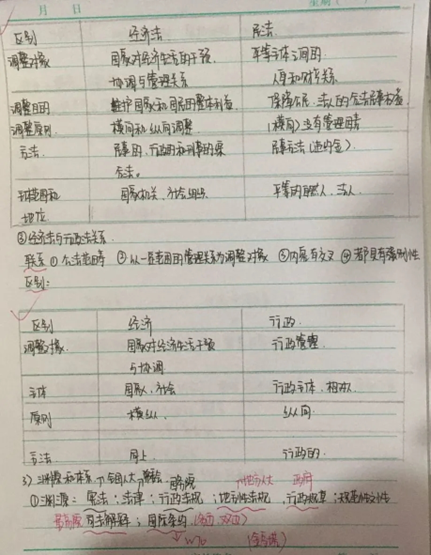 月 日 星期
区别 经济法 民法
调整对象 国家对经济生活的干预 平等主体之间的
协调与管理关系 人身和财产关系
调整目的 维护国家和国民的整体利益 保障公民、法人的合法民事权益
调整原则 横向和纵向调整 (横向)
方法 民事的、行政的和刑事的 民事方法(违约金)
方法。
国家机关、社会组织 平等的自然人、法人
地位
②经济法与行政法关系
联系 ① 公法范畴 ② 以一定范围的管理关系为调整对象 ③内容有交叉 ④ 都具有强制性
区别:
区别 经济 行政
调整对象 国家对经济生活干预 行政管理
与协调
主体 国家、社会 行政主体、相对人
原则 横纵 纵向
方法 同上 行政的
3) 渊源和体系 全国人大 国务院 地方人大 政府
①渊源: 宪法;法律;行政法规;地方性法规 行政规章;规范性文件
最高院 司法解释;国际条约
WTO